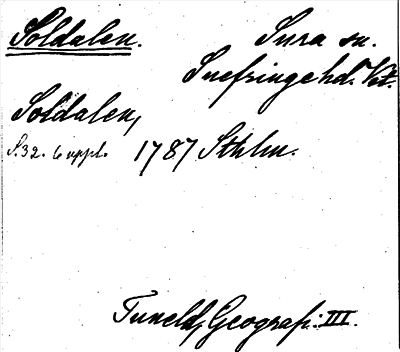 Soldalen.
Sura sn.
Snefringe hd. Vst.
Soldalen,
S. 32. 6 uppl. 1787 Sthlm.
Tuneld, Geografi. III.